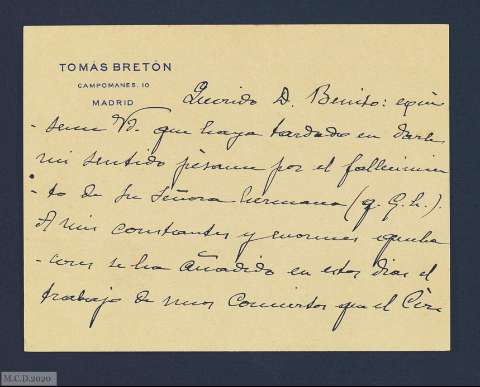 TOMÁS BRETÓN
CAMPOMANES, 10
MADRID
Querido D. Benito: excú-
seme Vd. que haya tardado en darle
mi sentido pésame por el fallecimien-
to de su Señora hermana (q. G. h.).
A mis constantes y enormes ocupa
ciones se ha añadido en estos dias el
trabajo de unos Conciertos que el Cír
M.C.D.2020